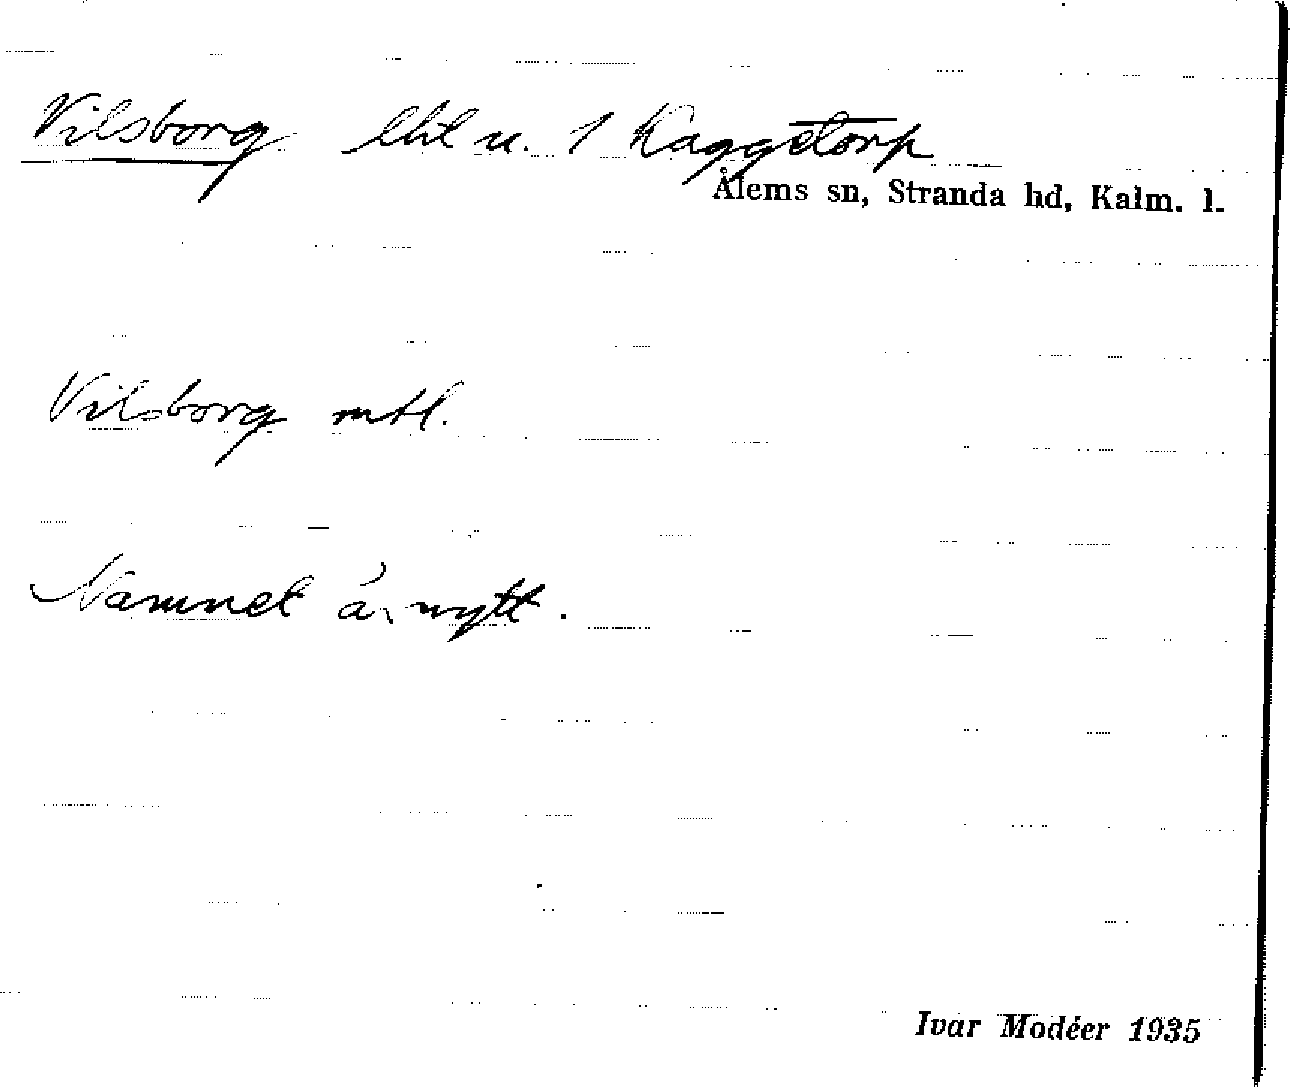 Vilsborg lht u. 1 Kaggetorp
Ålems sn, Stranda hd, Kalm. l.
Vilsborg mtl.
Namnet är nytt.
Ivar Modéer 1935